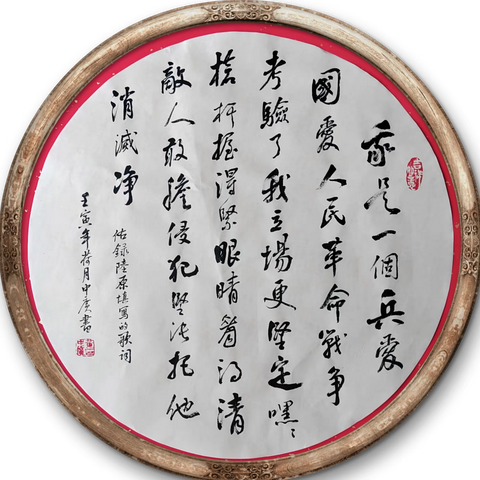 我是一個兵愛
國愛人民革命戰爭
考驗了我立場更堅定嘿〻
槍杆握得緊眼睛看得清
敵人敢膽侵犯堅决把他
消滅净
錄陸原填寫的歌詞
壬寅年荷月中庚書